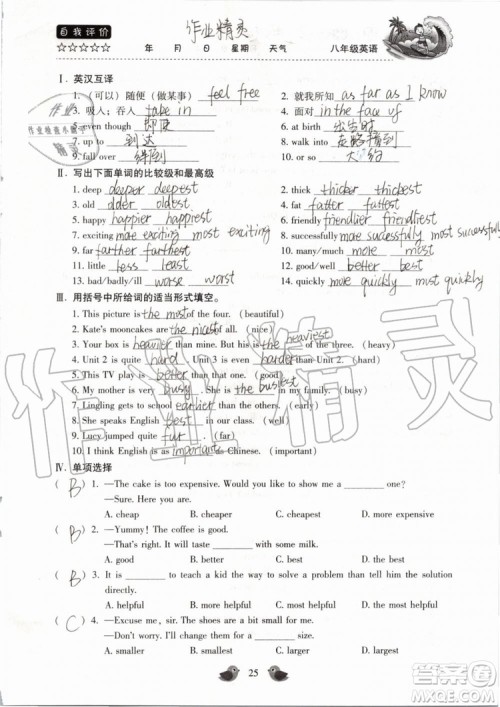 自我评价 作业精灵
☆☆☆☆☆ 年 月 日 星期 天气 八年级英语
Ⅰ. 英汉互译
1. (可以) 随便 (做某事) feel free 2. 所知 as far as I know
3. 吸入；吞入 take in 4. 面对 in the face of
5. even though 即使 6. at birth 出生时
7. up to 到达 8. walk into 走路撞到
9. fall over 绊倒 10. or so 大约
Ⅱ. 写出下面单词的比较级和最高级
1. deep deeper deepest 2. thick thicker thickest
3. old older oldest 4. fat fatter fattest
5. happy happier happiest 6. friendly friendlier friendliest
7. exciting more exciting most exciting 8. successfully more successfully most successfully
9. far farther farthest 10. many/much more most
11. little less least 12. good/well better best
13. bad/badly/ill worse worst 14. quickly more quickly most quickly
Ⅲ. 用括号中所给词的适当形式填空。
1. This picture is the most of the four. (beautiful)
2. Kate's mooncakes are the nicest of all. (nice)
3. Your box is heavier than mine. But his is the heaviest of the three. (heavy)
4. Unit 2 is quite hard. Unit 3 is even harder than Unit 2. (hard)
5. This TV play is better than that one. (good)
6. My mother is very busy. She is the busiest in my family. (busy)
7. Lingling gets to school earlier than the others. (early)
8. She speaks English best in our class. (well)
9. Lucy jumped quite far. (far)
10. I think English is as important as Chinese. (important)
Ⅳ. 单项选择
( B ) 1. —The cake is too expensive. Would you like to show me a ________ one?
—Sure. Here you are.
A. cheap B. cheaper C. cheapest D. more cheaper
( B ) 2. —Yummy! The coffee is good.
—That's right. It will taste ________ with some milk.
A. good B. better C. the best D. well
( B ) 3. It is ________ to teach a kid how to solve a problem than tell him the solution
directly.
A. helpful B. more helpful C. less helpful D. most helpful
( C ) 4. —Excuse me, sir. The shoes are a bit small for me.
—Don't worry. I'll change them for a ________ size.
A. smaller B. smallest C. larger D. largest
25